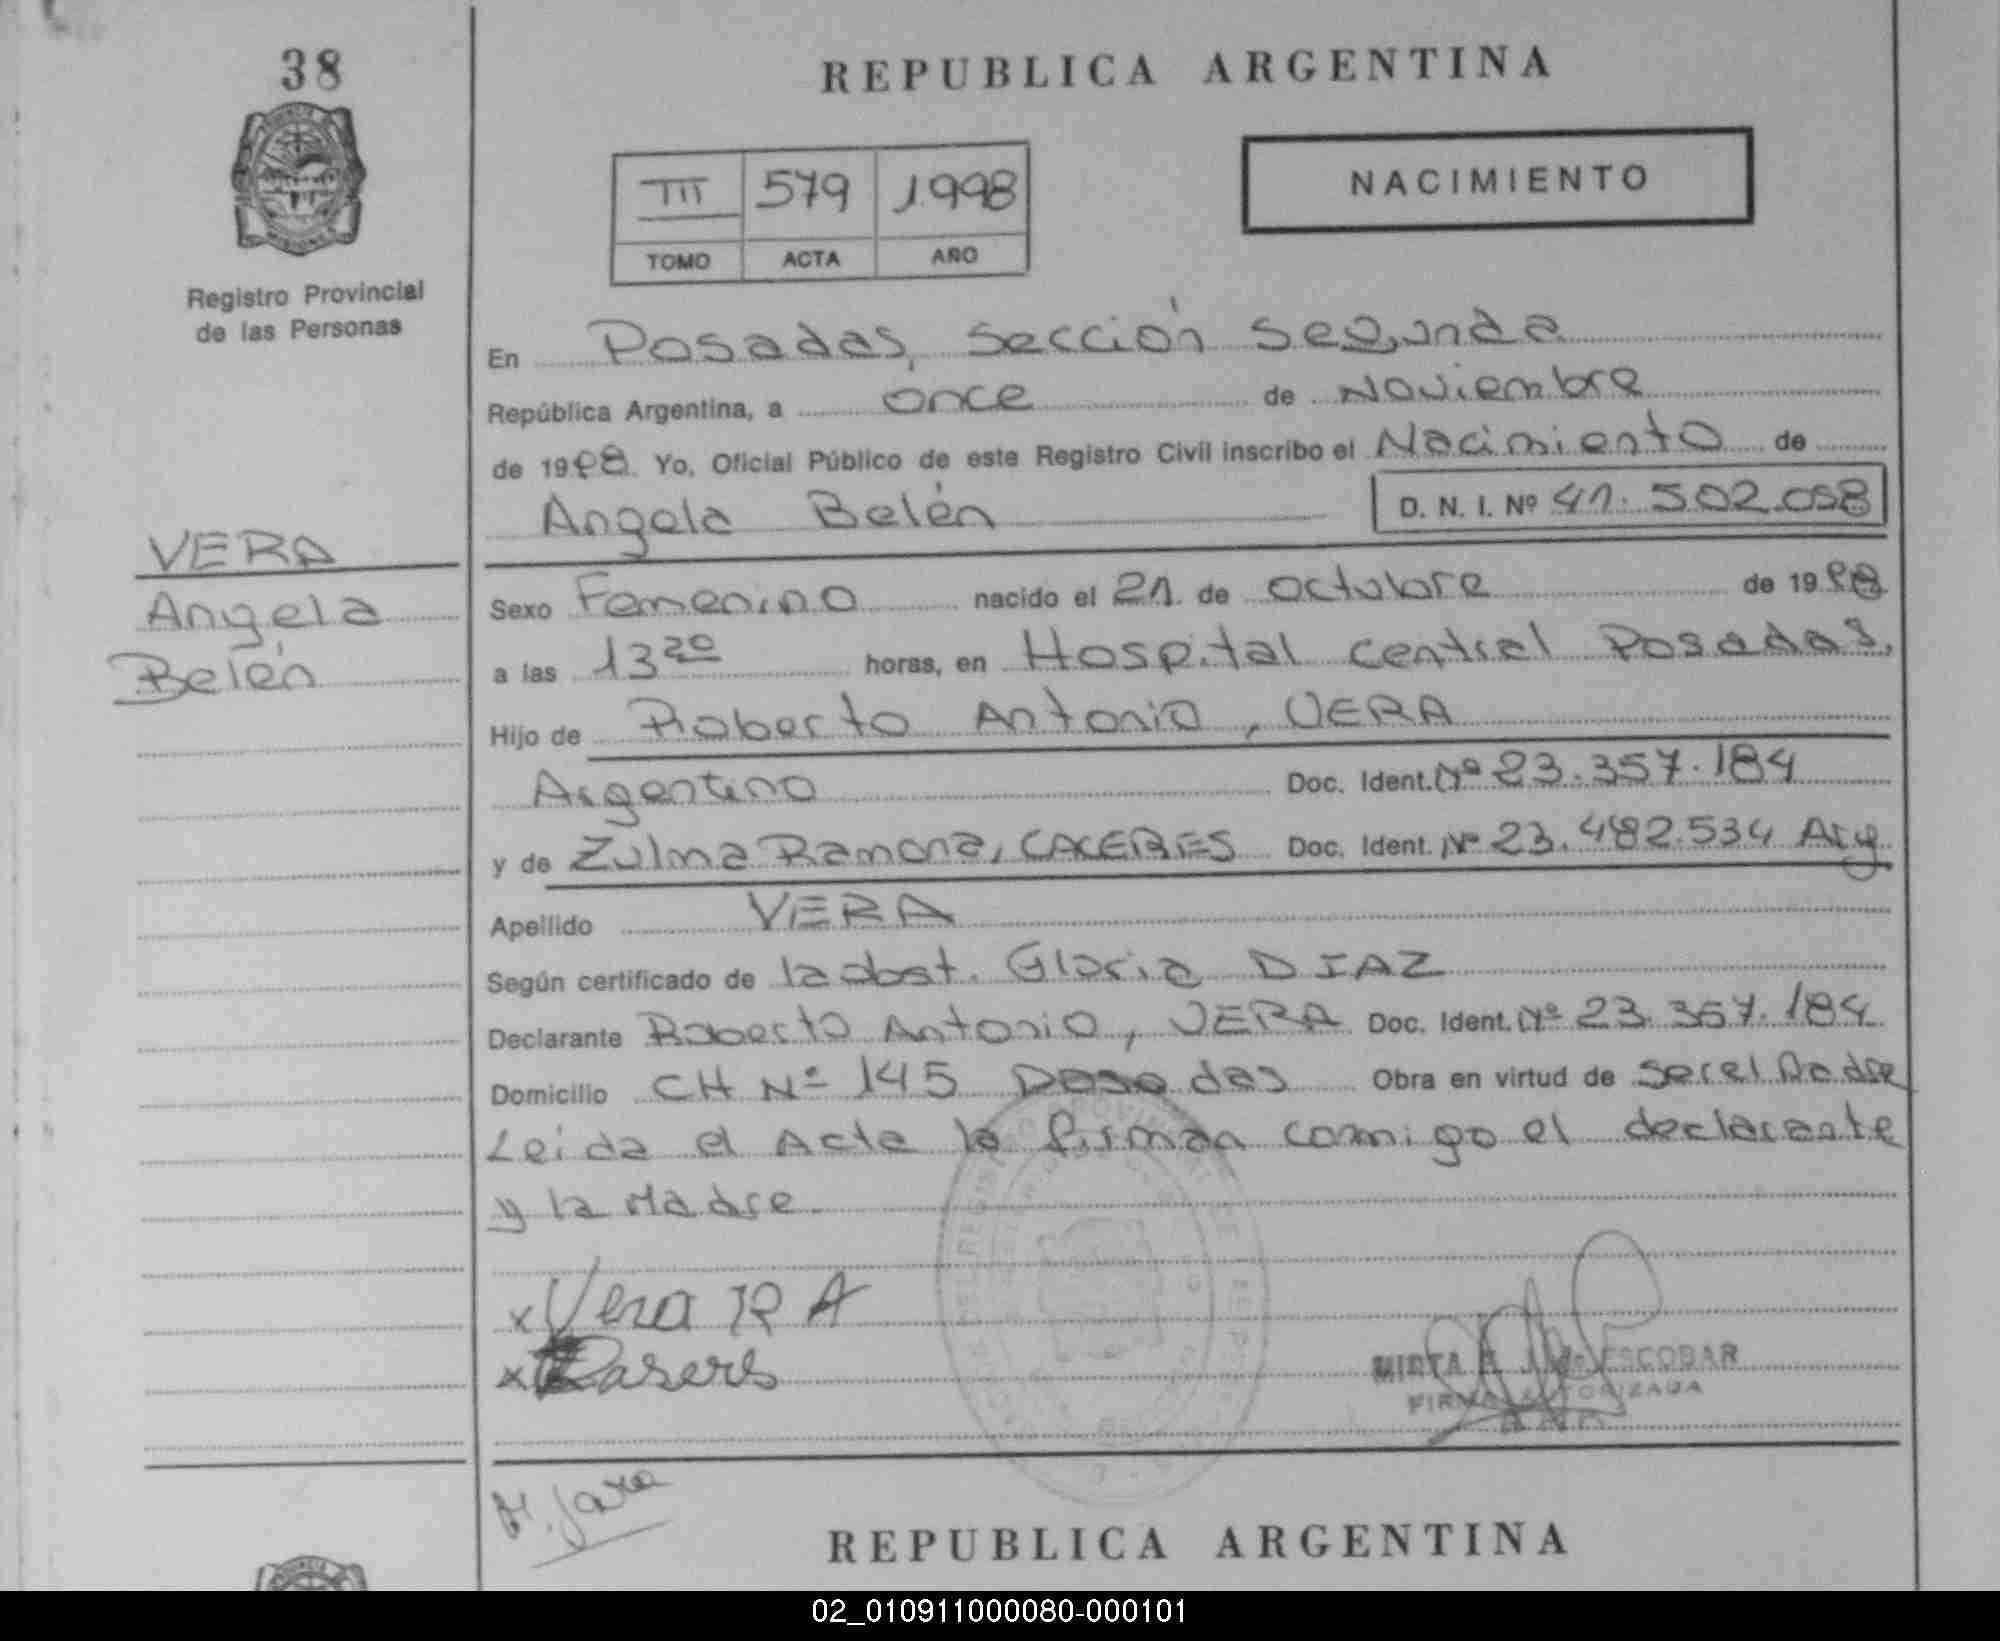 38
REPUBLICA ARGENTINA
III 579 1.998
TOMO ACTA AÑO
NACIMIENTO
Registro Provincial
de las Personas
En Posadas, Sección Segunda
República Argentina, a once de Noviembre
de 1998. Yo, Oficial Público de este Registro Civil inscribo el Nacimiento de
Angela Belén D. N. I. Nº 41.502.058
VERA
Angela
Belén
Sexo Femenino nacido el 21 de octubre de 1998
a las 13 20 horas, en Hospital central Posadas.
Hijo de Roberto Antonio, VERA
Argentino Doc. Ident. Nº 23.357.184
y de Zulma Ramona, CACERES Doc. Ident. Nº 23.482.534 Arg
Apellido VERA
Según certificado de la obst. Gloria DIAZ
Declarante Roberto Antonio, VERA Doc. Ident. Nº 23.357.184
Domicilio CH Nº 145 Posadas Obra en virtud de ser el Padre
Leida el Acta la firman conmigo el declarante
y la Madre.
x Vera R A
x
MIRTA ESCOBAR
FIRMA AUTORIZADA
REPUBLICA ARGENTINA
02_010911000080-000101